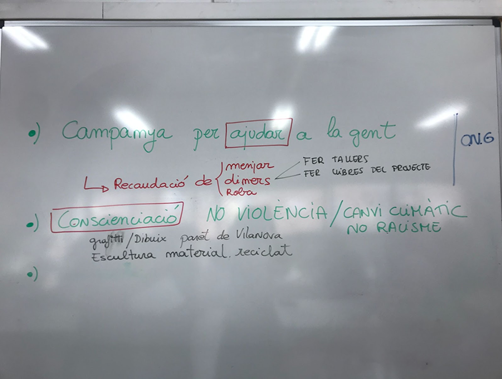 •) Campanya per ajudar a la gent
ONG
↳ Recaudació de { menjar
dimers
Roba
FER TALLERS
FER LLIBRES DEL PROJECTE
•) CONSCIENCIACIÓ NO VIOLÈNCIA / CANVI CLIMÀTIC
NO RACISME
grafitti / Dibuix paret de Vilanova
Escultura material reciclat
•)